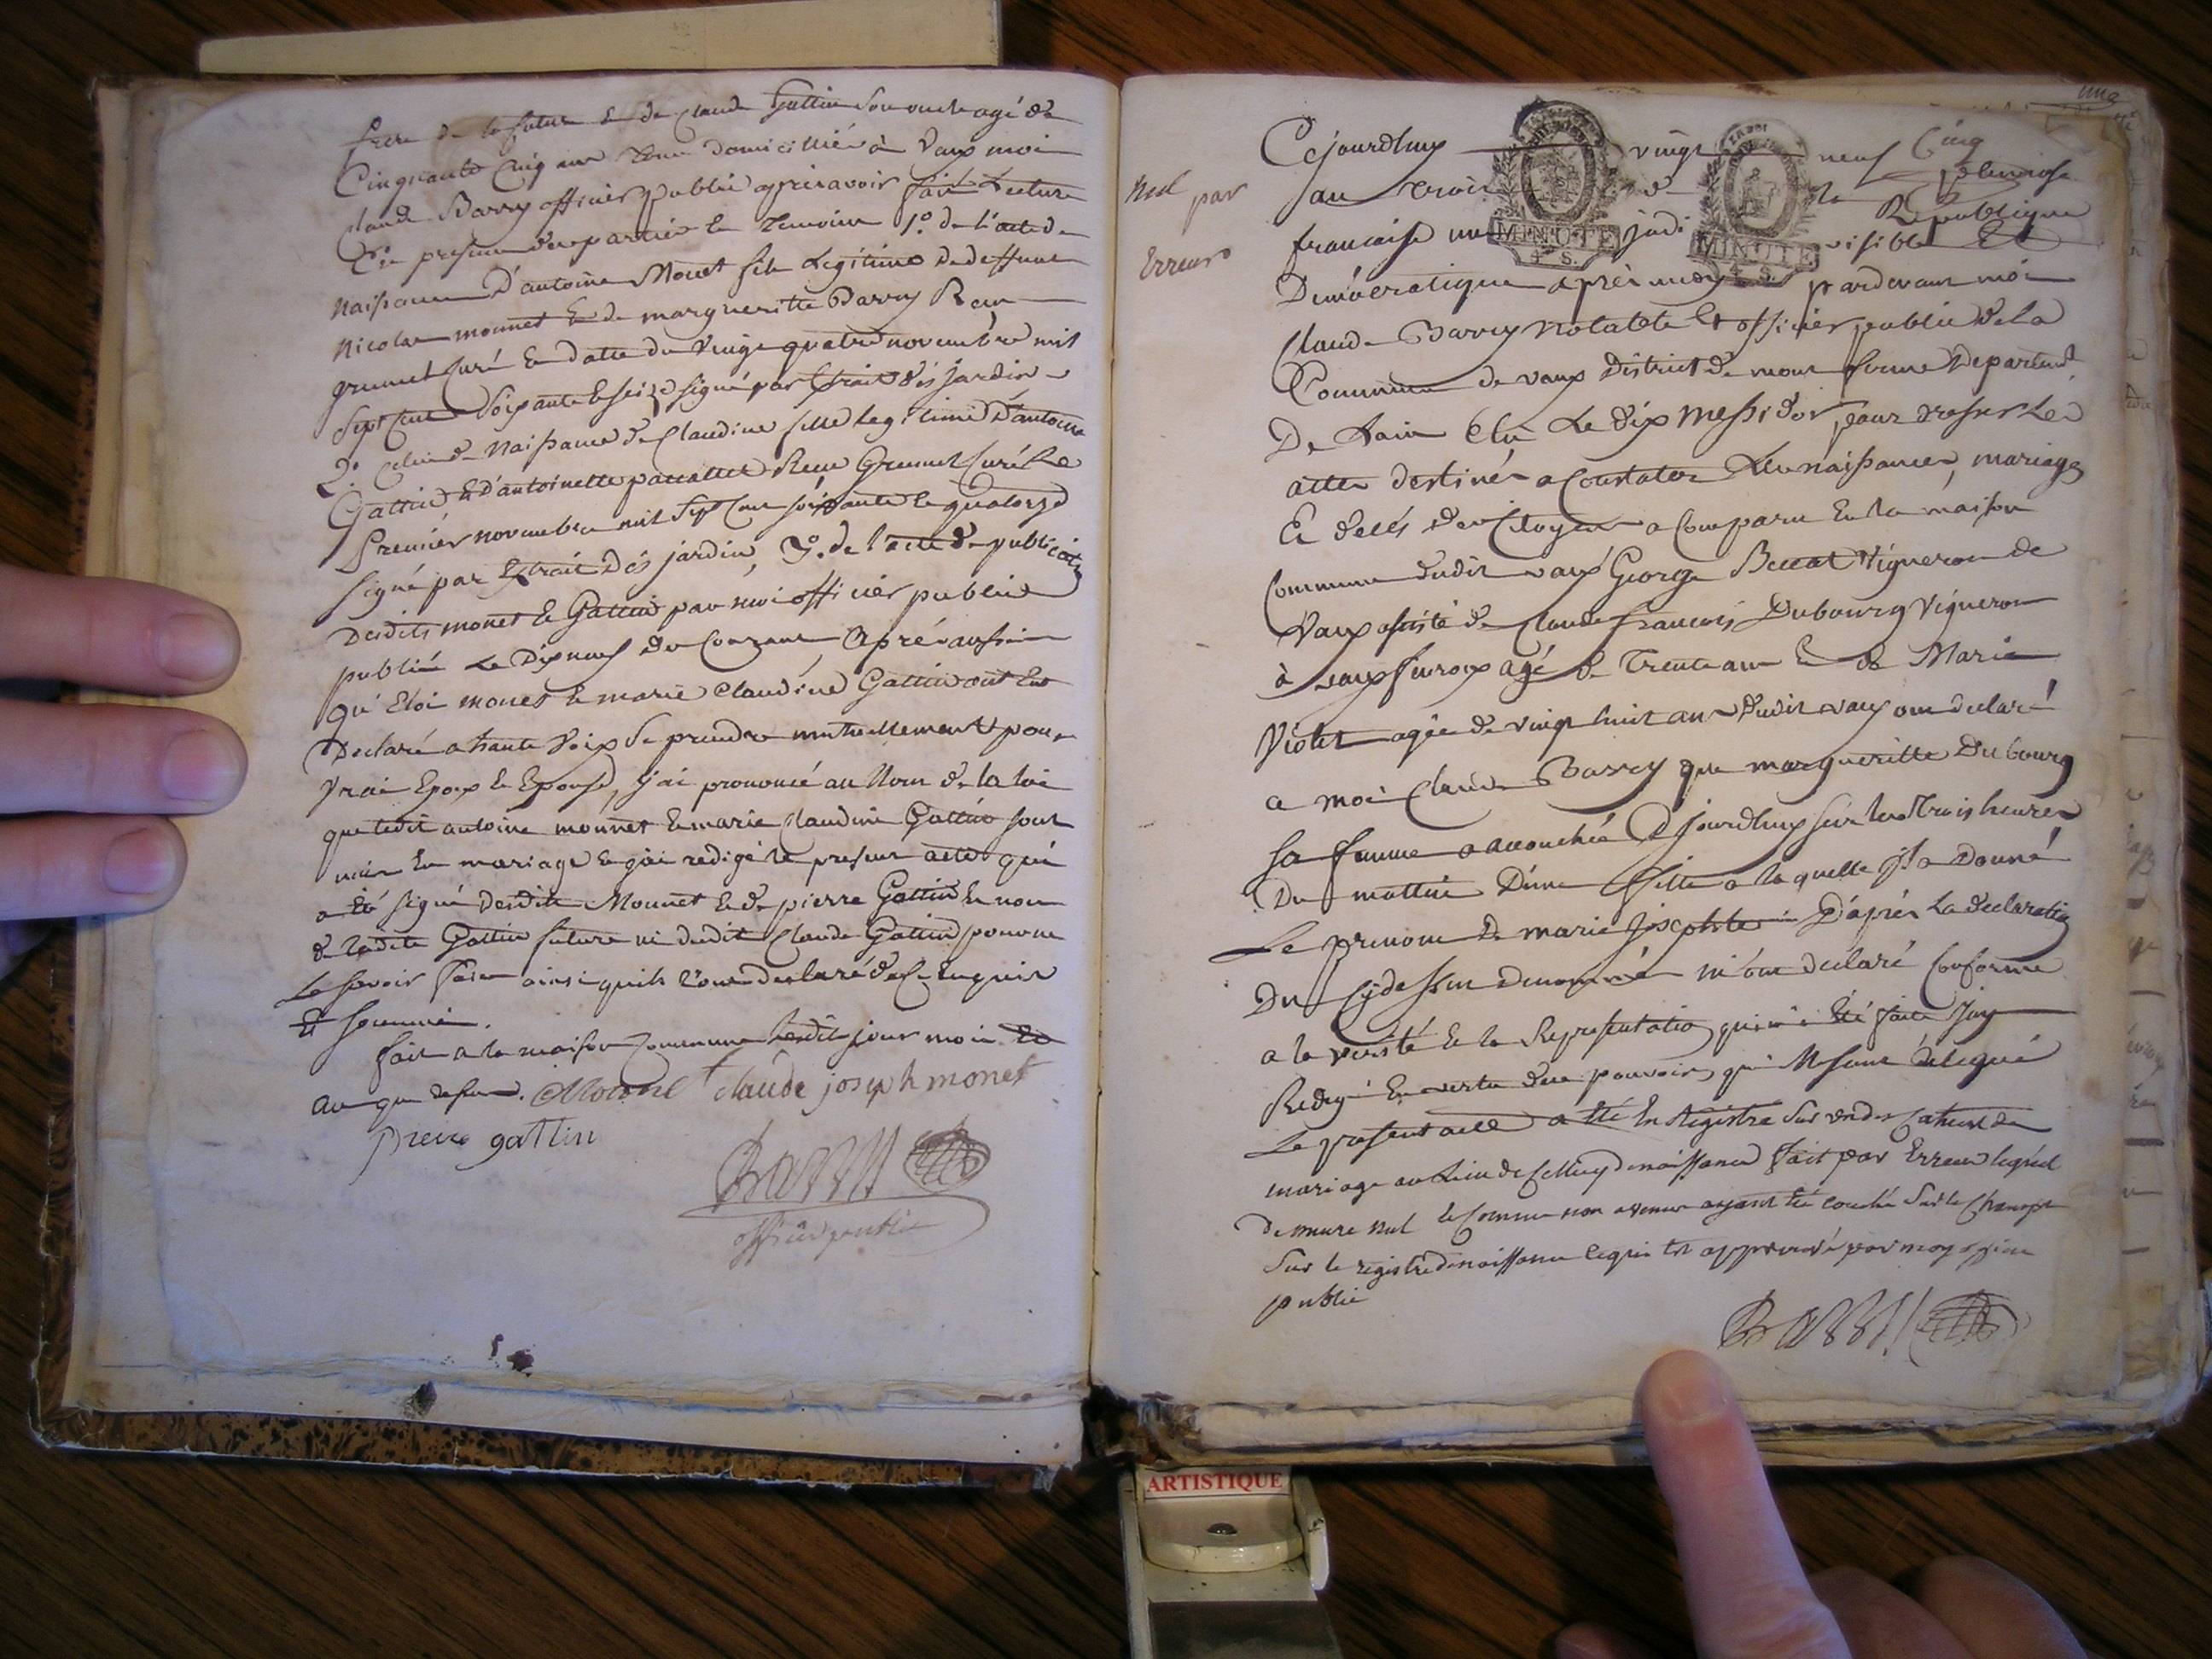 frere de la future et de Claude Gattin son oncle agé de
Cinquante Cinq ans tous domicilliés à Vaux moi
Claude Barry officier public apres avoir fait Lecture
En presence des parties et temoins 1° de l'acte de
Naissance D'antoine Monet fils Legitime de deffunt
Nicolas monnet et de margueritte Barry Reçu
grumet Curé en datte du vingt quatre novembre mil
Sept Cent Soixante et seize signé par Extrait Dés jardin
2° Celui de Naissance de Claudine fille Legitime D'antoine
Gattin et d'antoinette Reçu Grumet Curé Le
Premier novembre mil Sept Cent soixante et quatorze
signé par Extrait Dés jardin, 3° de l'acte de publication
Desdits monet et Gattin par moi officier public
publié Le Dix neuf du Courant Après aussi
qu' monet et marie Claudine Gattin ont Eu
Declaré a haute Voix se prendre mutuellement pour
Vrai Epoux et Epouse, j'ai prononcé au Nom de la loi
que ledit antoine monnet et marie Claudine Gattin sont
unis En mariage et j'ai redigé le present acte qui
a Eté signé desdits Monnet et de pierre Gattin et non
de ladite Gattin future ni dudit Claude Gattin pour ne
Le savoir faire ainsi quils l'ont declaré de ce Enquis
Et sommé.
fait a la maison Commune lesdits jour mois et
an que dessus. Monet claude joseph monet
pierre gattin
Barry
officier public
Cejourdhuy vingt neuf Cinq
nul par Erreur
au trois de la Republique
francaise une jndivisible Et
MINUTE
4 S.
MINUTE
4 S.
Démocratique après midy pardevant moi
Claude Barry notable et officier public de la
Commune de vaux District de mont ferme Departemt
De Lain Elu Le dix Messidor pour dresser Les
actes destinés a Constater Les naissances, mariages
Et décés des Citoyens a Comparu En la maison
Commune dudit vaux George Beccat Vigneron de
Vaux assisté de Claude francois Dubourg Vigneron
à vaux agé de Trente ans Et de Marie
Violet agée de vingt huit ans dudit vaux ont declaré
a moi Claude Barry que margueritte Dubourg
sa femme a accouchée Cejourdhuy sur les Trois heures
Du mattin D'une fille a laquelle il a Donné
Le prenom De marie Josephte D'après La declaration
Du Cydessus Denommé m'ont declaré Conforme
a la verité Et la Representation qui m'a Eté faite J'ay
Redigé En vertu des pouvoirs qui Me sont délegué
Le present acte a Eté Enregistré sur un des cahiers de
mariage au Lieu de Celluy de naissance fait par Erreur lequel
demeure nul et Comme non avenu ayant Eté couché Sur le Champt
Sur le registre de naissance ce qui Est approuvé par moy officier
public
Barry
ARTISTIQUE